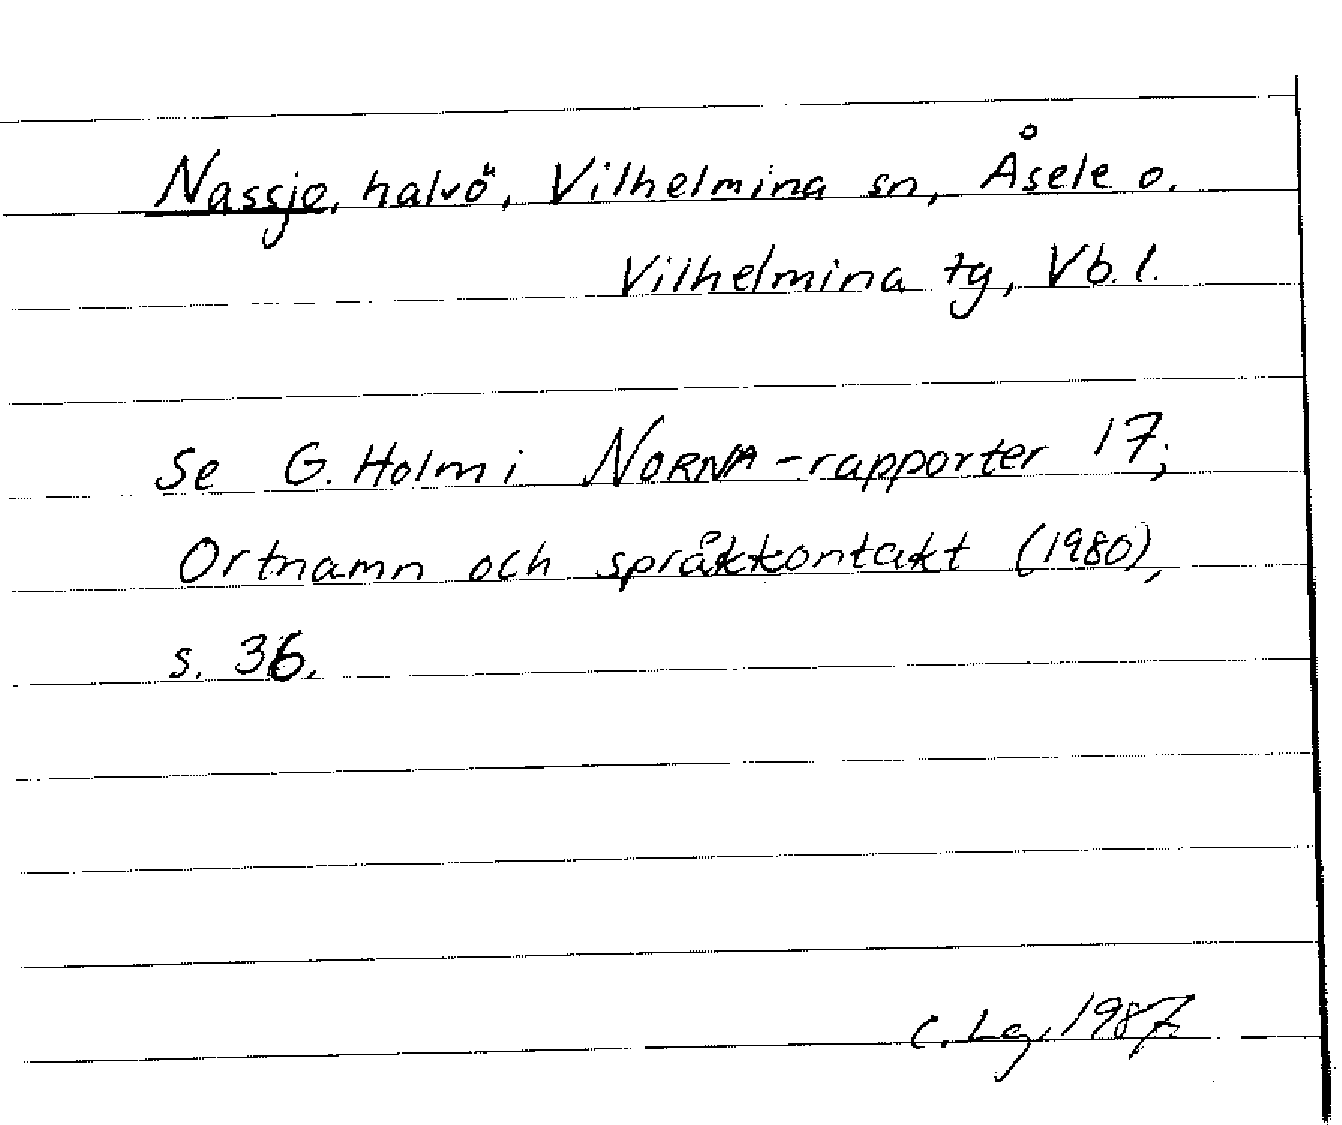 Nassjo, halvö, Vilhelmina sn, Åsele o.
Vilhelmina tg, Vb. l.
Se G. Holm i NORNA-rapporter 17;
Ortnamn och språkkontakt (1980),
s. 36.
C. Lg. 1987.